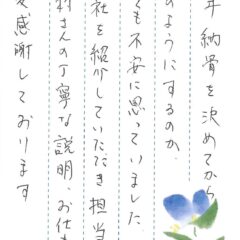 年納骨を決めてから
のようにするのか、
ても不安に思っていました。
社を紹介していただき担当
村さんの丁寧な説明、お仕事
感謝しております